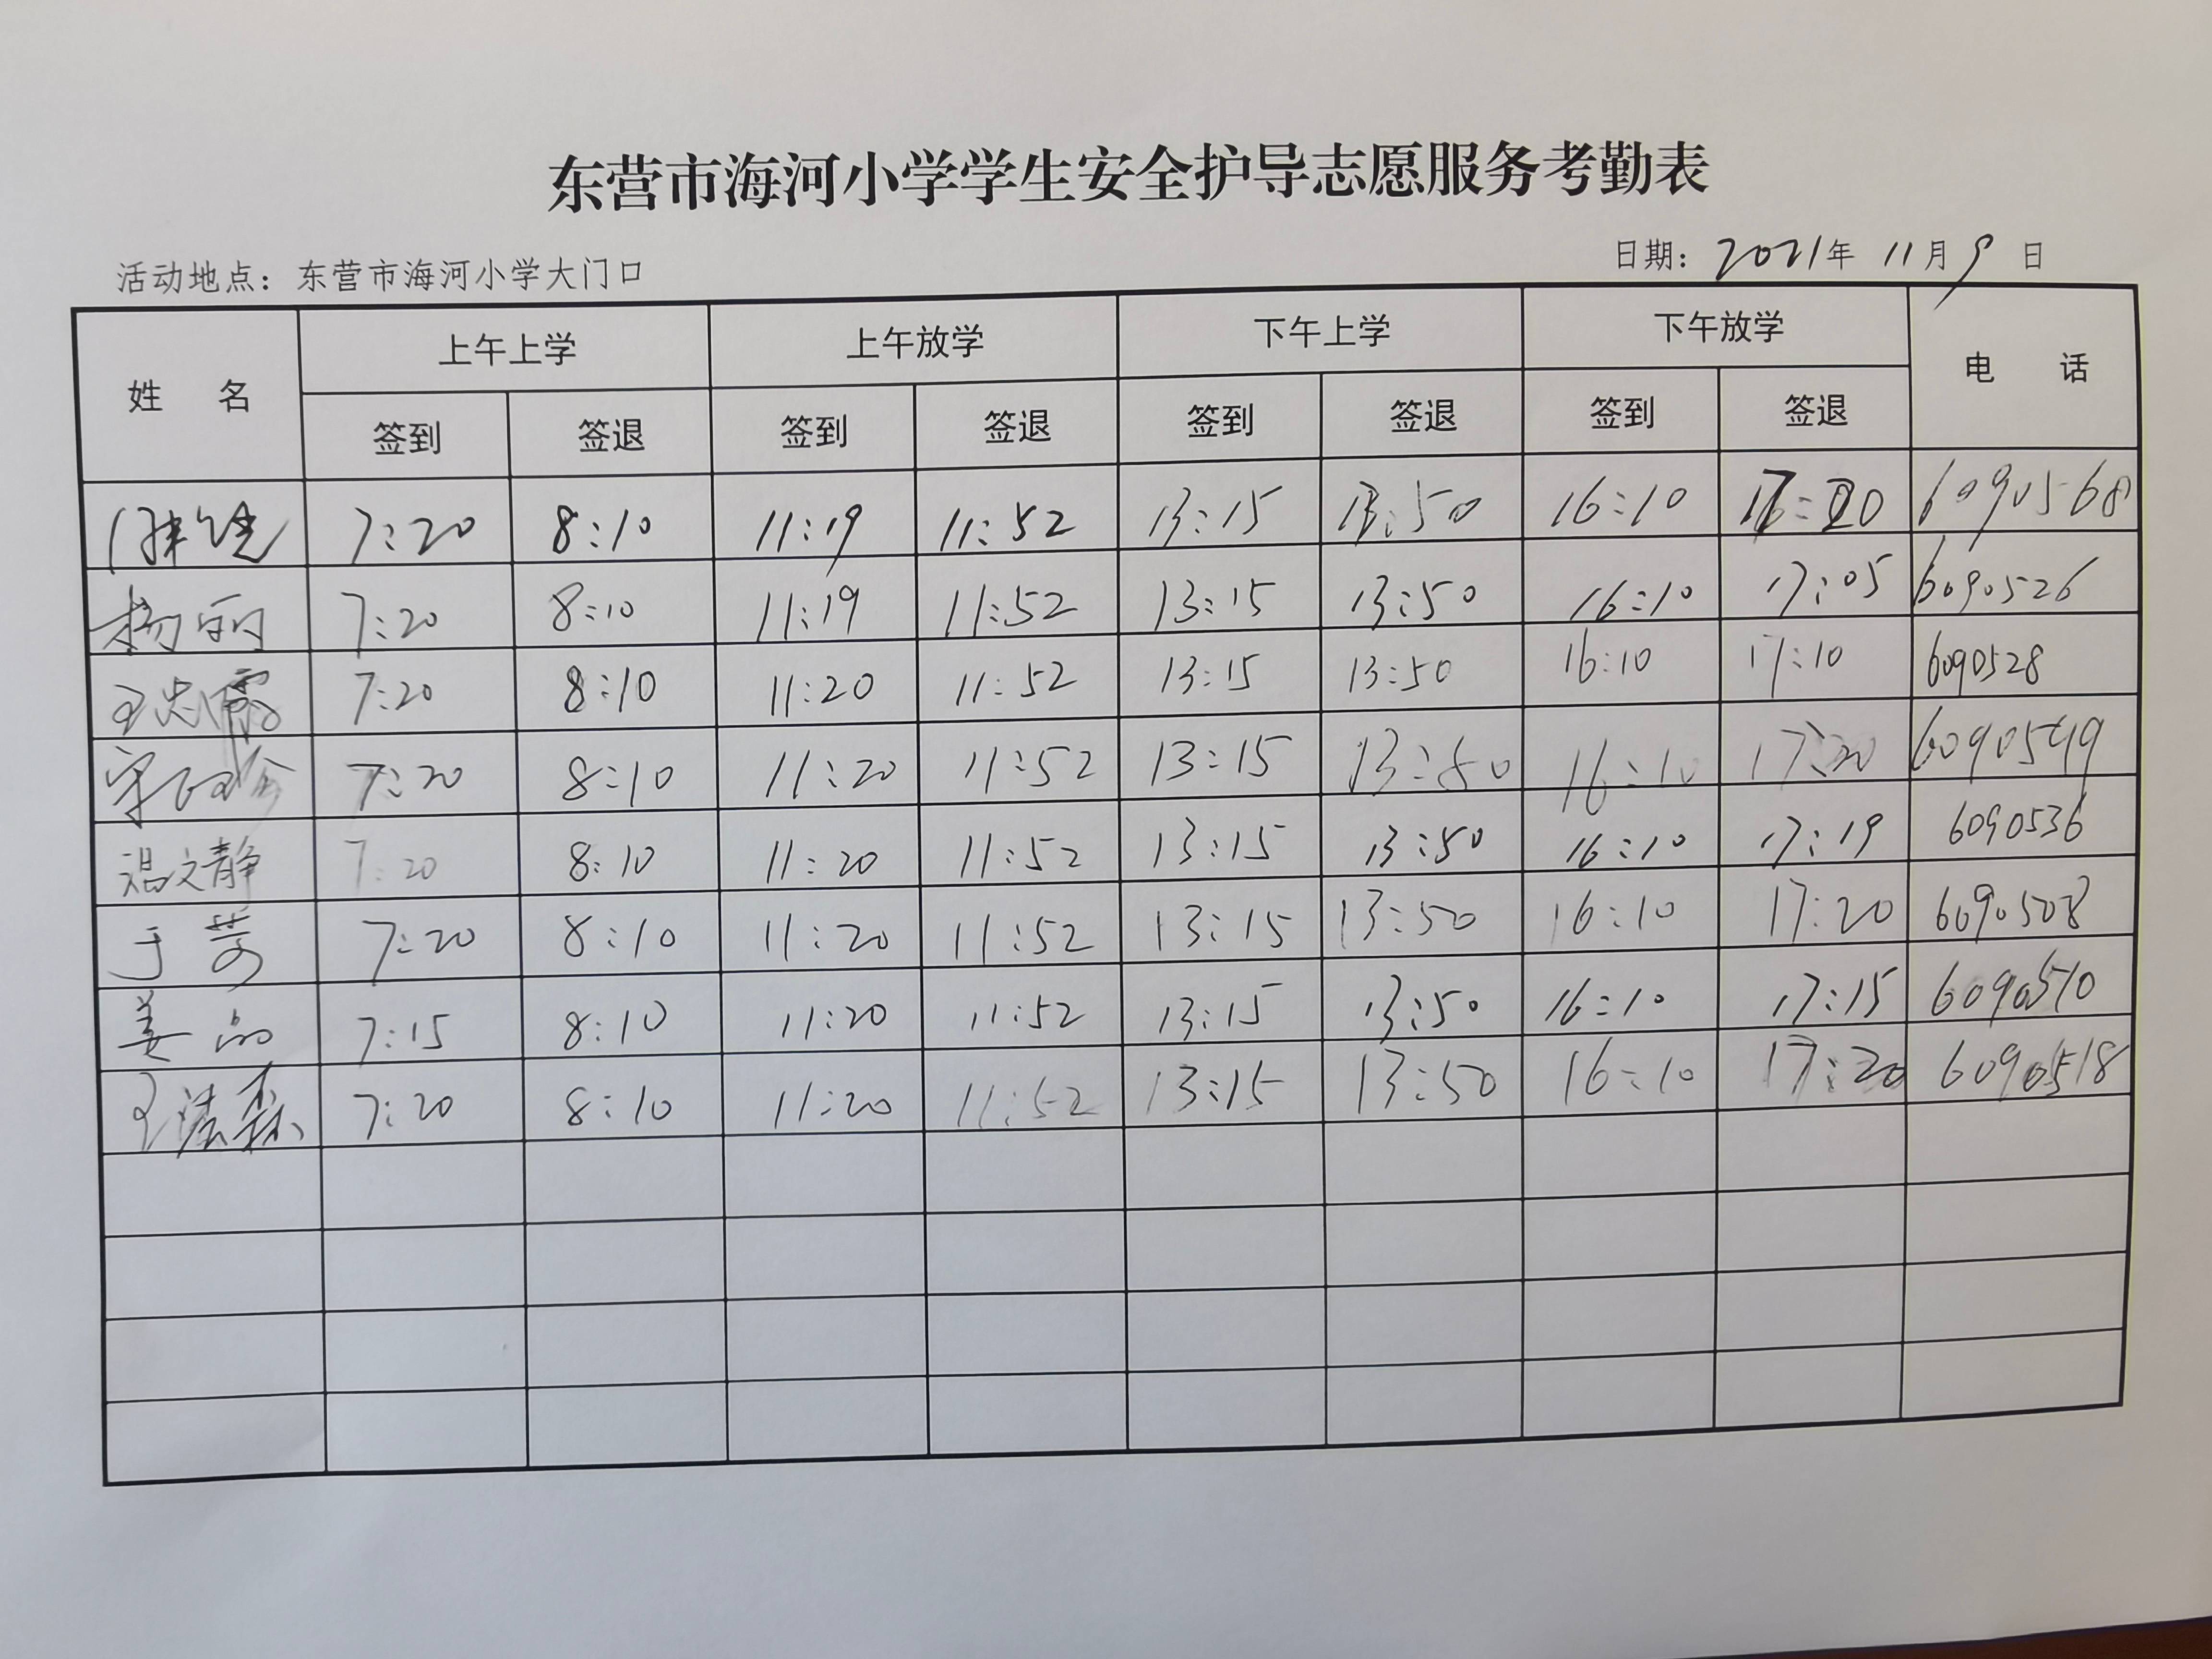 东营市海河小学学生安全护导志愿服务考勤表
活动地点：东营市海河小学大门口 日期：2021年 11月9日
姓 名 上午上学 上午放学 下午上学 下午放学 电 话
签到 签退 签到 签退 签到 签退 签到 签退
7:20 8:10 11:19 11:52 13:15 13:50 16:10 6090568
杨丽 7:20 8:10 11:19 11:52 13:15 13:50 16:10 17:05 6090526
王忠霞 7:20 8:10 11:20 11:52 13:15 13:50 16:10 17:10 6090528
7:20 8:10 11:20 11:52 13:15 13:50 16:10 17:20 6090549
温文静 7:20 8:10 11:20 11:52 13:15 13:50 16:10 17:19 6090536
于芳 7:20 8:10 11:20 11:52 13:15 13:50 16:10 17:20 6090508
姜 7:15 8:10 11:20 11:52 13:15 13:50 16:10 17:15 6090510
王法森 7:20 8:10 11:20 11:52 13:15 13:50 16:10 17:20 6090518